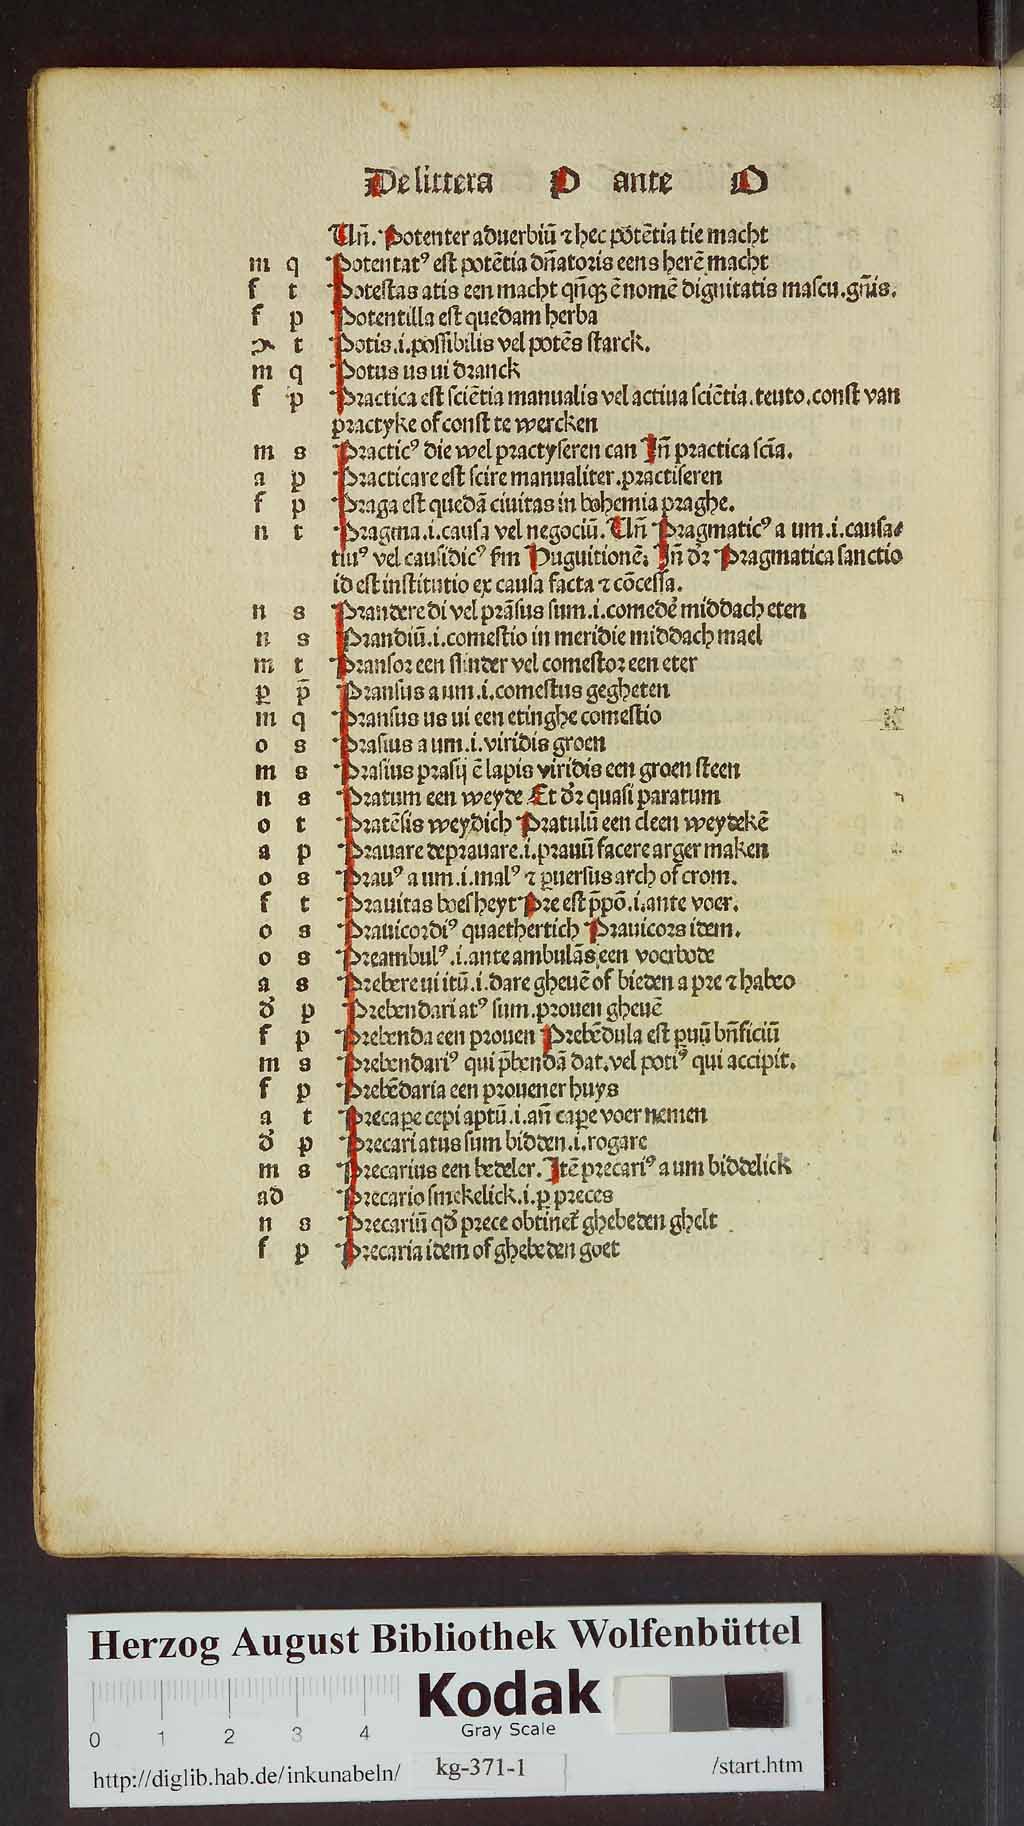 De littera P ante O
Un̄. Potenter aduerbiū ⁊ hec potētia tie macht
m q Potentatꝰ est potētia dn̄atoris eens herē macht
f t Potestas atis een macht qn̄qꝫ ē nomē dignitatis mascu.gn̄is.
f p Potentilla est quedam herba
t Potis.i.possibilis vel potēs starck.
m q Potus us ui dranck
f p Practica est sciētia manualis vel actiua sciētia.teuto.const van
practyke of const te wercken
m s Practicꝰ die wel practyseren can Jn̄ practica scīa.
a p Practicare est scire manualiter.practiseren
f p Praga est quedā ciuitas in bohemia praghe.
n t Pragma.i.causa vel negociū. Un̄ Pragmaticꝰ a um.i.causa⸗
tiuꝰ vel causidicꝰ fm Huguitionē; Jn̄ dr̄ Pragmatica sanctio
id est institutio ex causa facta ⁊ cōcessa.
n s Prandere di vel prāsus sum.i.comedē middach eten
n s Prandiū.i.comestio in meridie middach mael
m t Pransor een slinder vel comestor een eter
ꝑ p̄ Pransus a um.i.comestus gegheten
m q Pransus us ui een etinghe comestio
o s Prasius a um.i.viridis groen
m s Prasius prasij ē lapis viridis een groen steen
n s Pratum een weyde Et dr̄ quasi paratum
o t Pratēsis weydich Pratulū een cleen weydekē
a p Prauare deprauare.i.prauū facere arger maken
o s Prauꝰ a um.i.malꝰ ⁊ ꝑuersus arch of crom.
f t Prauitas boesheyt Pre est p̄pō.i.ante voer.
o s Prauicordiꝰ quaethertich Prauicors idem.
o s Preambulꝰ.i.ante ambulās een voerbode
a s Prebere ui itū.i.dare gheuē of bieden a pre ⁊ habeo
d̄ p Prebendari atꝰ sum.prouen gheuē
f p Prebenda een prouen Prebēdula est ꝑuū bn̄ficiū
m s Prebendariꝰ qui p̄bendā dat.vel potiꝰ qui accipit.
f p Prebēdaria een prouener huys
a t Precaꝑe cepi aptū.i.an̄ caꝑe voer nemen
d̄ p Precari atus sum bidden.i.rogare
m s Precarius een bedeler. Jtē precariꝰ a um biddelick
ad Precario smekelick.i.ꝑ preces
n s Precariū qd̄ prece obtinet̄ ghebeden ghelt
f p Precaria idem of ghebeden goet
Herzog August Bibliothek Wolfenbüttel
Kodak
Gray Scale
0 1 2 3 4
http://diglib.hab.de/inkunabeln/ kg-371-1 /start.htm